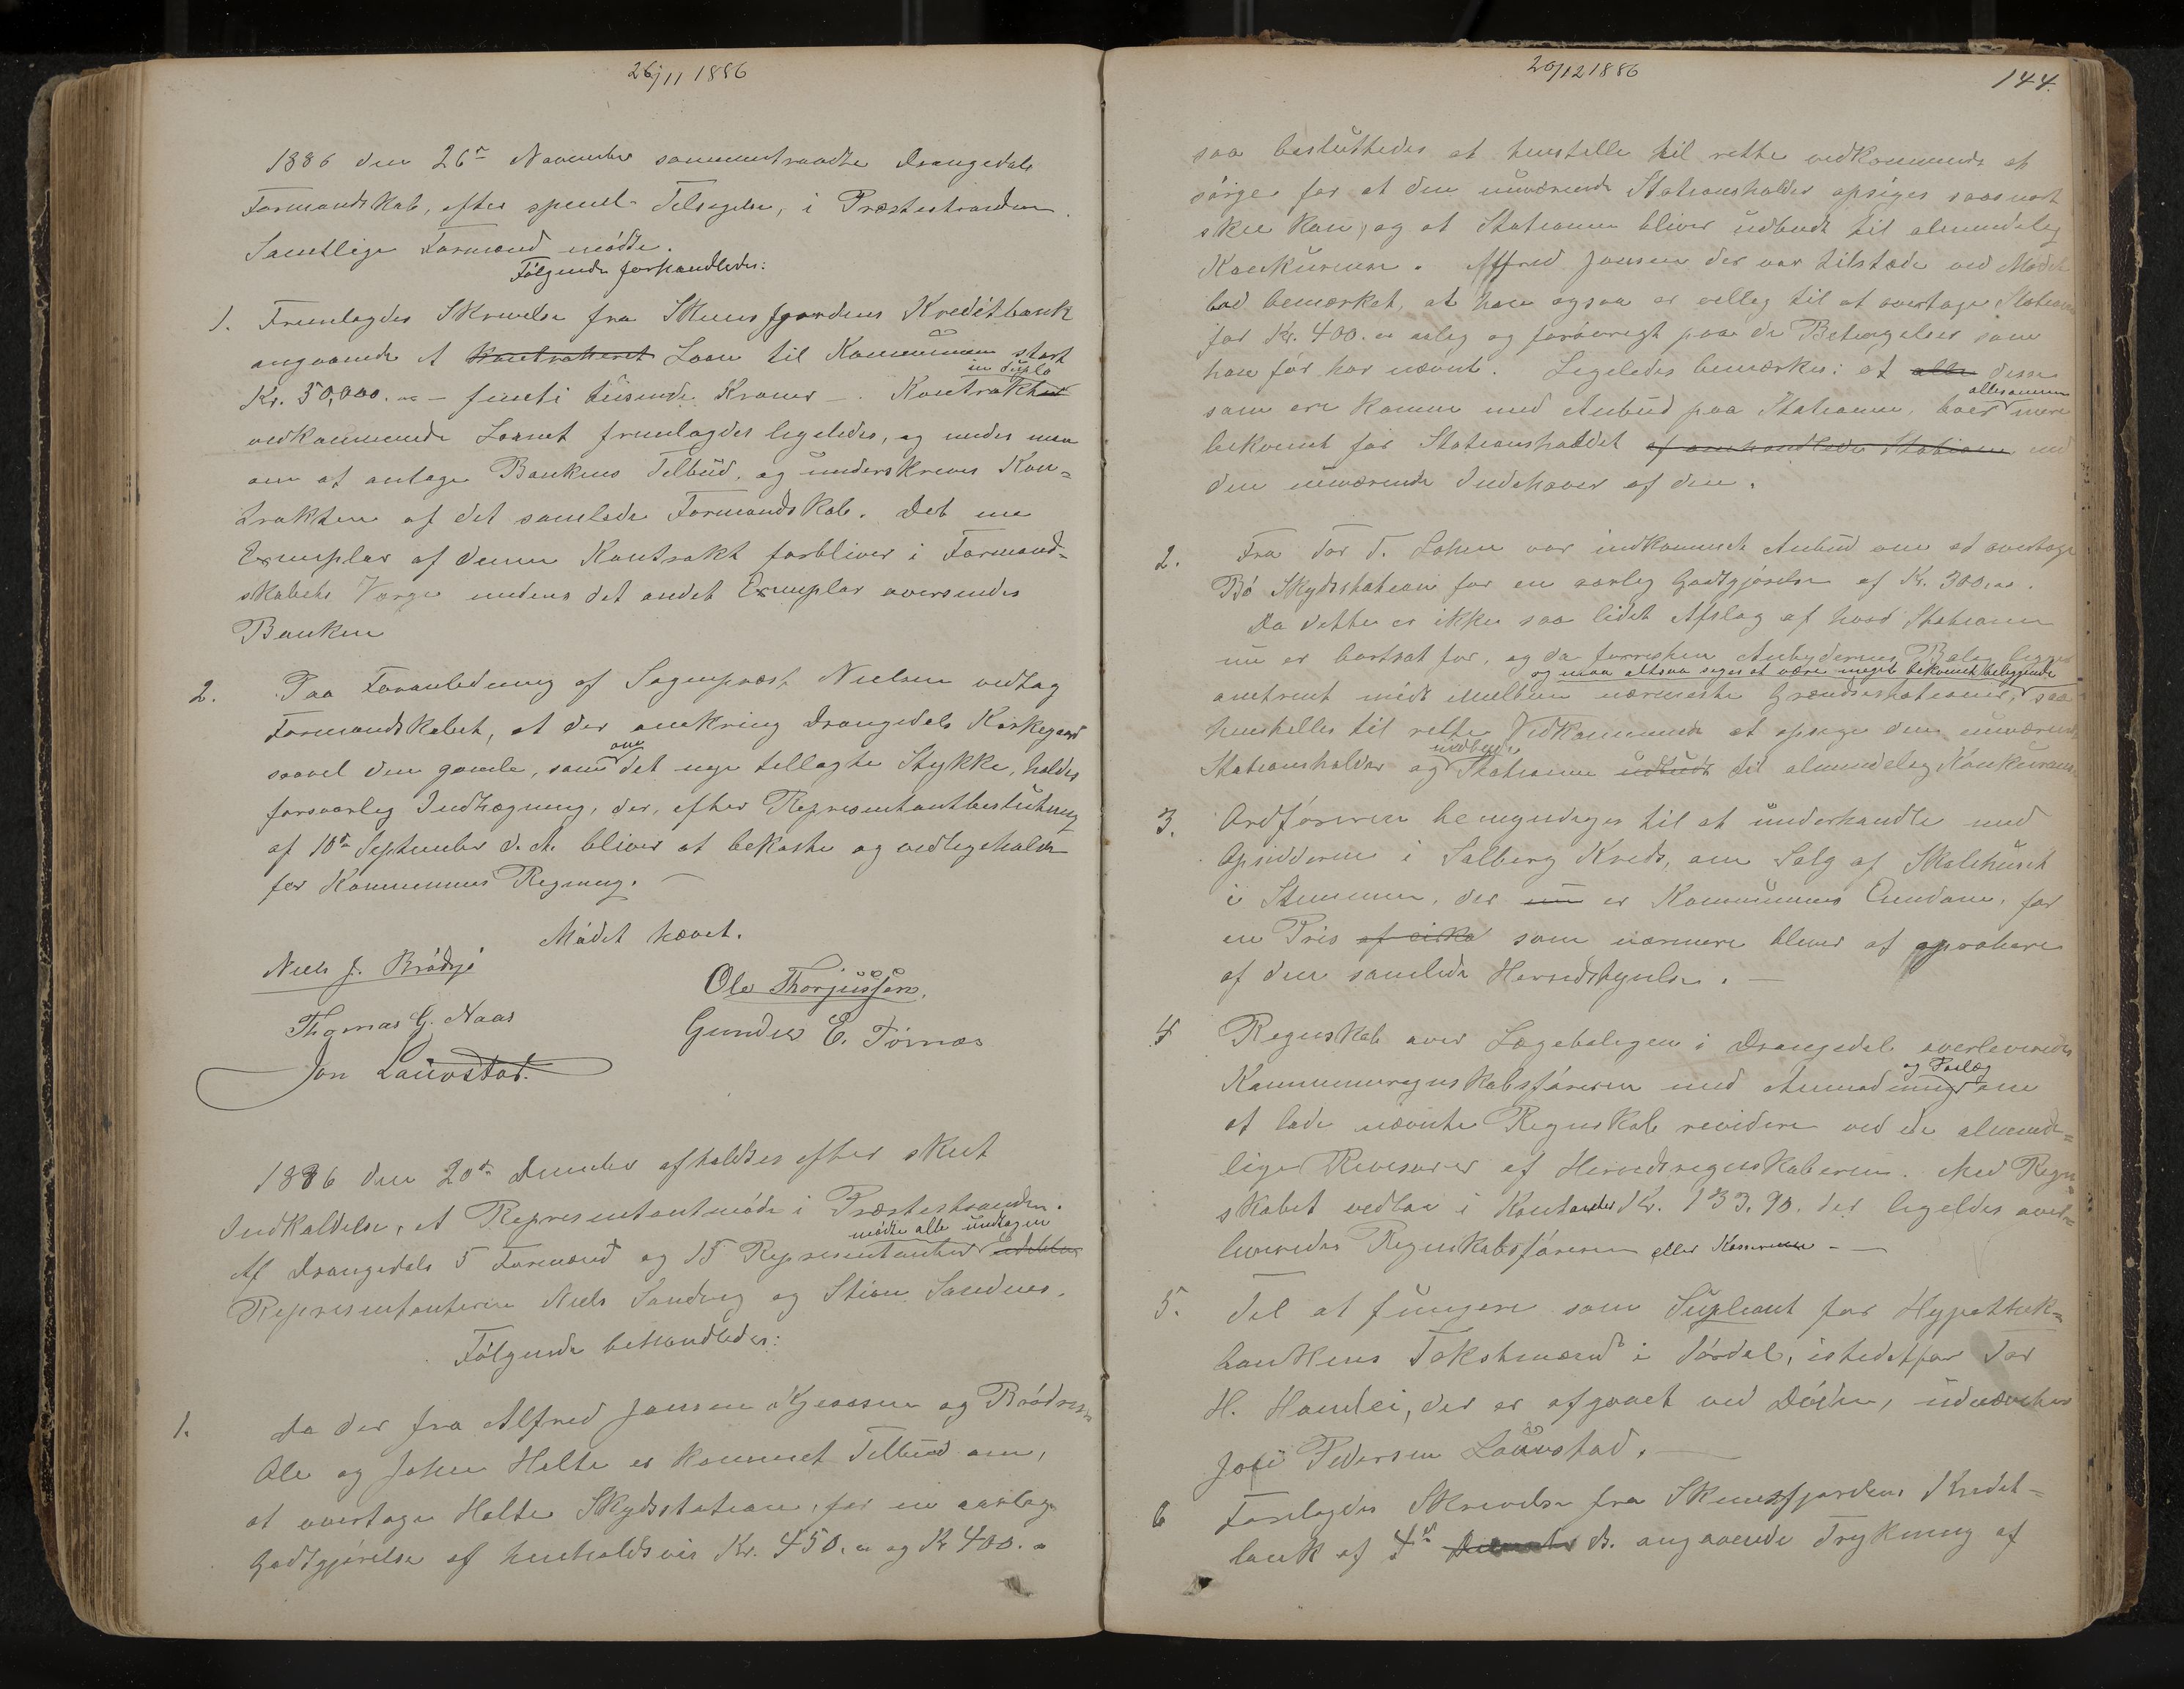 26/11 1886
1886 den 26de November sammentraadte Drangedals
Formandskab, efter speciel Tilsigelse, i Præstestranden.
Samtlige Formænd mødte.
Følgende forhandledes:
1. Fremlagdes Skrivelse fra Skiensfjordens Kreditbank
angaaende et kontraheret Laan til Kommunen stort
in duplo
Kr. 50,000. — femti tusinde Kroner —. Kontrakten
vedkommende Laanet fremlagdes ligeledes, og enedes man
om at antage Bankens Tilbud, og underskreves Kon=
trakten af det samlede Formandskab. Det ene
Exemplar af denne Kontrakt forbliver i Formand-
skabets Værge medens det andet Exemplar oversendes
Banken
2. Paa Foranledning af Sognepræst Nielsen vedtog
Formandskabet, at der omkring Drangedals Kirkegaard
om
saavel den gamle, som det nye tillagte Stykke, holdes
forsvarlig Indhegning, der, efter Representantbeslutning
af 10de September d. A. bliver at bekoste og vedligeholde
for Kommunens Regning. —
Mødet hævet.
Niels J. Brødsjø
Ole Thorjussen.
Thomas G. Naas
Gunder E. Tørnæs
Jon Lauvstad.
1886 den 20de December afholdtes efter skeet
Indkaldelse, et Representantmøde i Præstestranden.
mødte alle undtagen
Af Drangedals 5 Formænd og 15 Representanter udeblev
Representanterne Niels Sandvig og Stian Sandnes.
Følgende behandledes:
1. Da der fra Alfred Jansen Kjeaasen og Brødrene
Ole og John Holte er kommet Tilbud om,
at overtage Holte Skydsstation, for en aarlig
Godtgjørelse af henholdsvis Kr. 450. og Kr 400.
20/12 1886
144.
saa besluttedes at henstille til rette vedkommende at
sørge for at den nuværende Stationsholder opsiges saasnart
skee kan, og at Stationen bliver udbudt til almindelig
Konkurense. Alfred Jansen der var tilstede ved Mødet
lod bemærket, at han ogsaa er villig til at overtage Stationen
for Kr. 400. aarlig og forøvrigt paa de Betingelser som
han før har nævnt. Ligeledes bemærkes: at alle disse
allesammen
som ere komne med Anbud paa Stationen, boer mere
bekvemt for Stationsholdet af omhandlede Station end
den nuværende Indehaver af den.
2. Fra Tor T. Lohne var indkommet Anbud om at overtage
Bø Skydsstation for en aarlig Godtgjørelse af Kr. 300.
Da dette er ikke saa lidet Afslag af hvad Stationen
nu er bortsat for, og da forresten Anbyderens Bolig ligger
og maa altsaa siges at være meget bekvemt beliggende
omtrent midt imellem nærmeste Grændsestationer, saa
henstilles til rette Vedkommende at opsige den nuværende
udbyde
Stationsholder og Stationen udbudt til almindelig Konkurense
3. Ordføreren bemyndiges til at underhandle med
Opsidderne i Solberg Kreds, om Salg af Skolehuset
i Stemmen, der nu er Kommunens Eiendom, for
en Pris af cirka som nærmere bliver at aprobere
af den samlede Herredstyrelse. —
4 Regnskab over Lægeboligen i Drangedal overleveredes
og Paalæg
Kommuneregnskabsføreren med Anmodning om
at lade nævnte Regnskab revidere ved de alminde=
lige Revisorer af Herredsregnskaberne. Med Regn=
skabet vedlaa i Kontanter Kr. 133.90. der ligeledes over=
leveredes Regnskabsføreren eller Kassereren. —
5. Til at fungere som Supleant for Hypothek=
bankens Takstmænd i Tørdal, istedetfor Tor
H. Homlei, der er afgaaet ved Døden, udnævntes
Jofi Pedersen Lauvstad. —
6 Forelagdes Skrivelse fra Skiensfjordens Kredit=
bank af 4de December ds. angaaende Trykning af